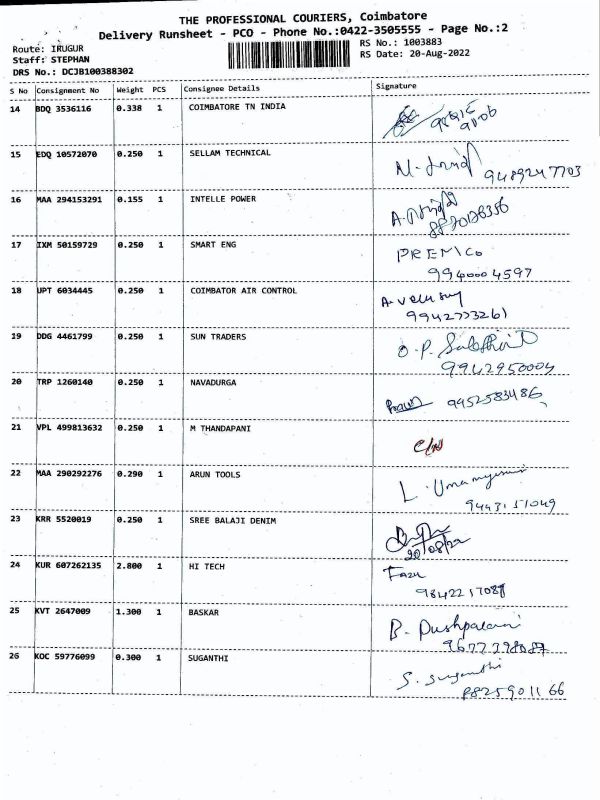 THE PROFESSIONAL COURIERS, Coimbatore
Delivery Runsheet - PCO - Phone No.:0422-3505555 - Page No.:2
Route: IRUGUR
Staff: STEPHAN
DRS No.: DCJB100388302
RS No.: 1003883
RS Date: 20-Aug-2022
S No Consignment No Weight PCS Consignee Details Signature
14 BDQ 3536116 0.338 1 COIMBATORE TN INDIA
15 EDQ 10572070 0.250 1 SELLAM TECHNICAL
9489247703
16 MAA 294153291 0.155 1 INTELLE POWER
17 IXM 50159729 0.250 1 SMART ENG
9940004597
18 UPT 6034445 0.250 1 COIMBATOR AIR CONTROL
9942773261
19 DDG 4461799 0.250 1 SUN TRADERS
O.P.
9942950004
20 TRP 1260140 0.250 1 NAVADURGA
9952583486
21 VPL 499813632 0.250 1 M THANDAPANI
22 MAA 290292276 0.290 1 ARUN TOOLS
9443151049
23 KRR 5520019 0.250 1 SREE BALAJI DENIM
20/08/22
24 KUR 607262135 2.800 1 HI TECH
25 KVT 2647009 1.300 1 BASKAR
26 KOC 59776099 0.300 1 SUGANTHI
S. Suganthi
8825901166